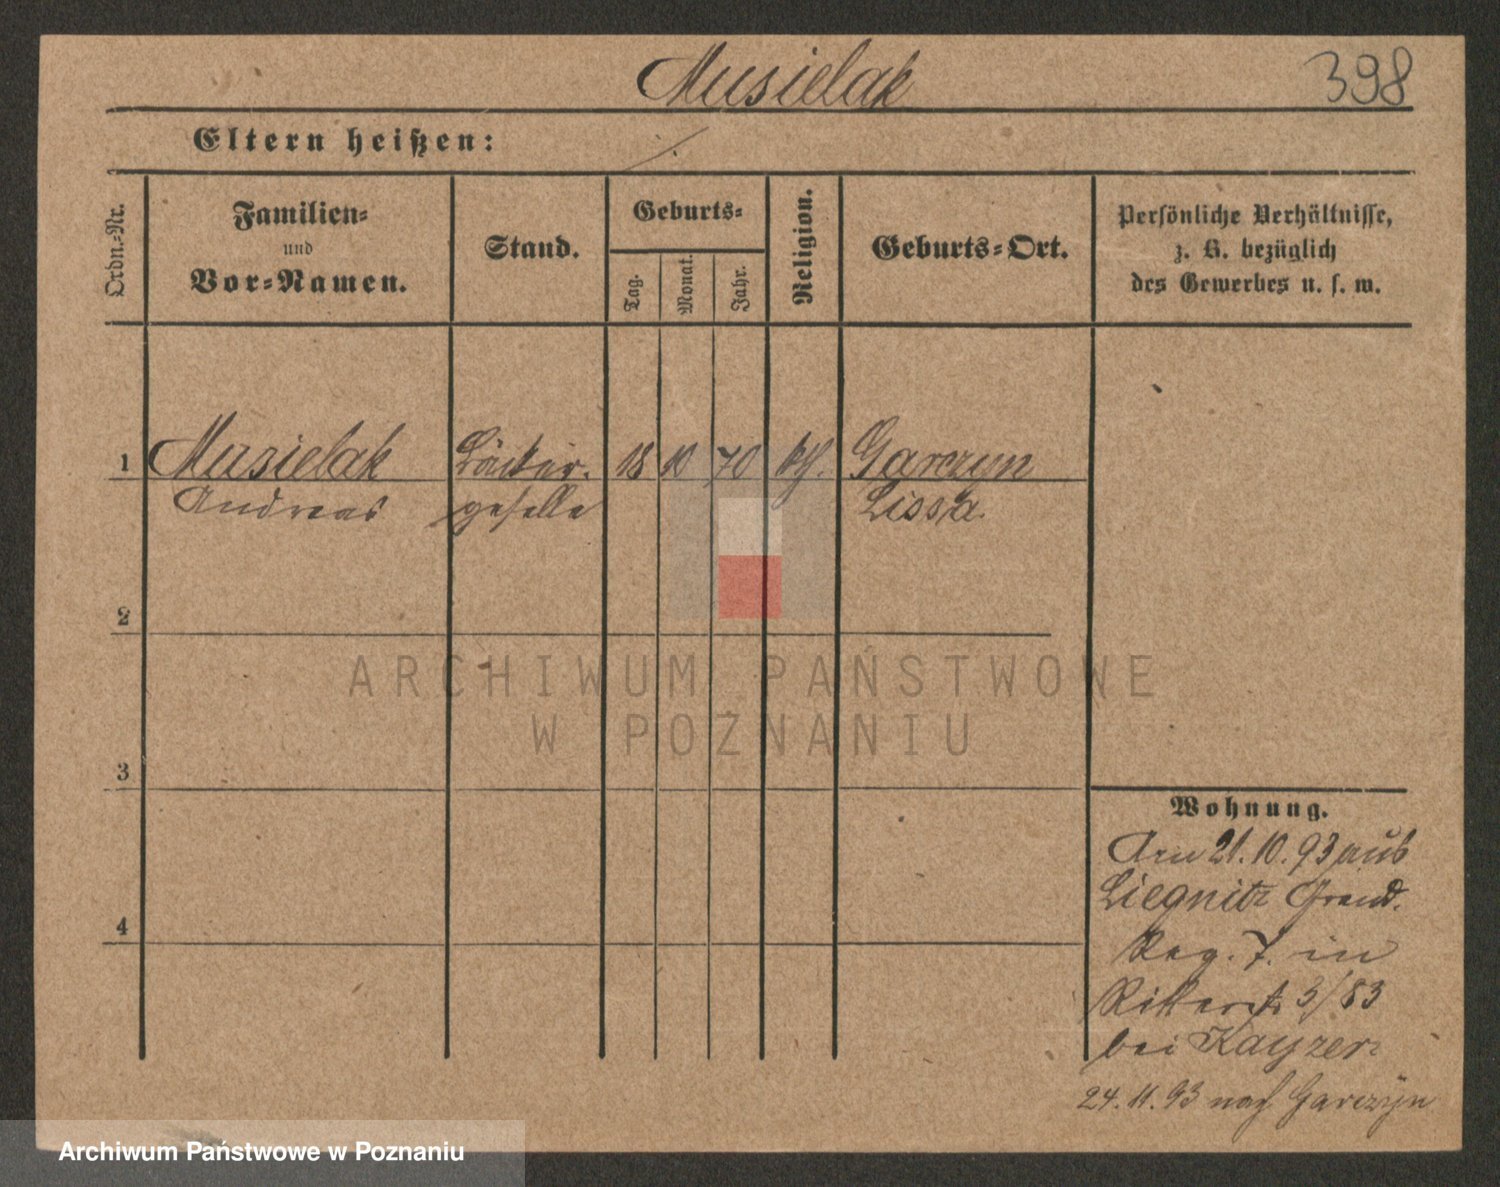 Musielak
398
Eltern heißen: ./.
Ordn.-Nr.
Familien-
und
Vor-Namen.
Stand.
Geburts-
Tag.
Monat.
Jahr.
Religion.
Geburts-Ort.
Persönliche Verhältnisse,
z. B. bezüglich
des Gewerbes u. s. w.
1 Musielak Bäcker- 18 10 70 kth. Garczyn
Andreas geselle Lissa
2
3
4
Wohnung.
Am 21.10.93 aus
Liegnitz Grend.
Reg. 7. in
Ritterst. 3/83
bei Kayzer
24.11.93 nach Garczyn
ARCHIWUM PAŃSTWOWE
W POZNANIU
Archiwum Państwowe w Poznaniu